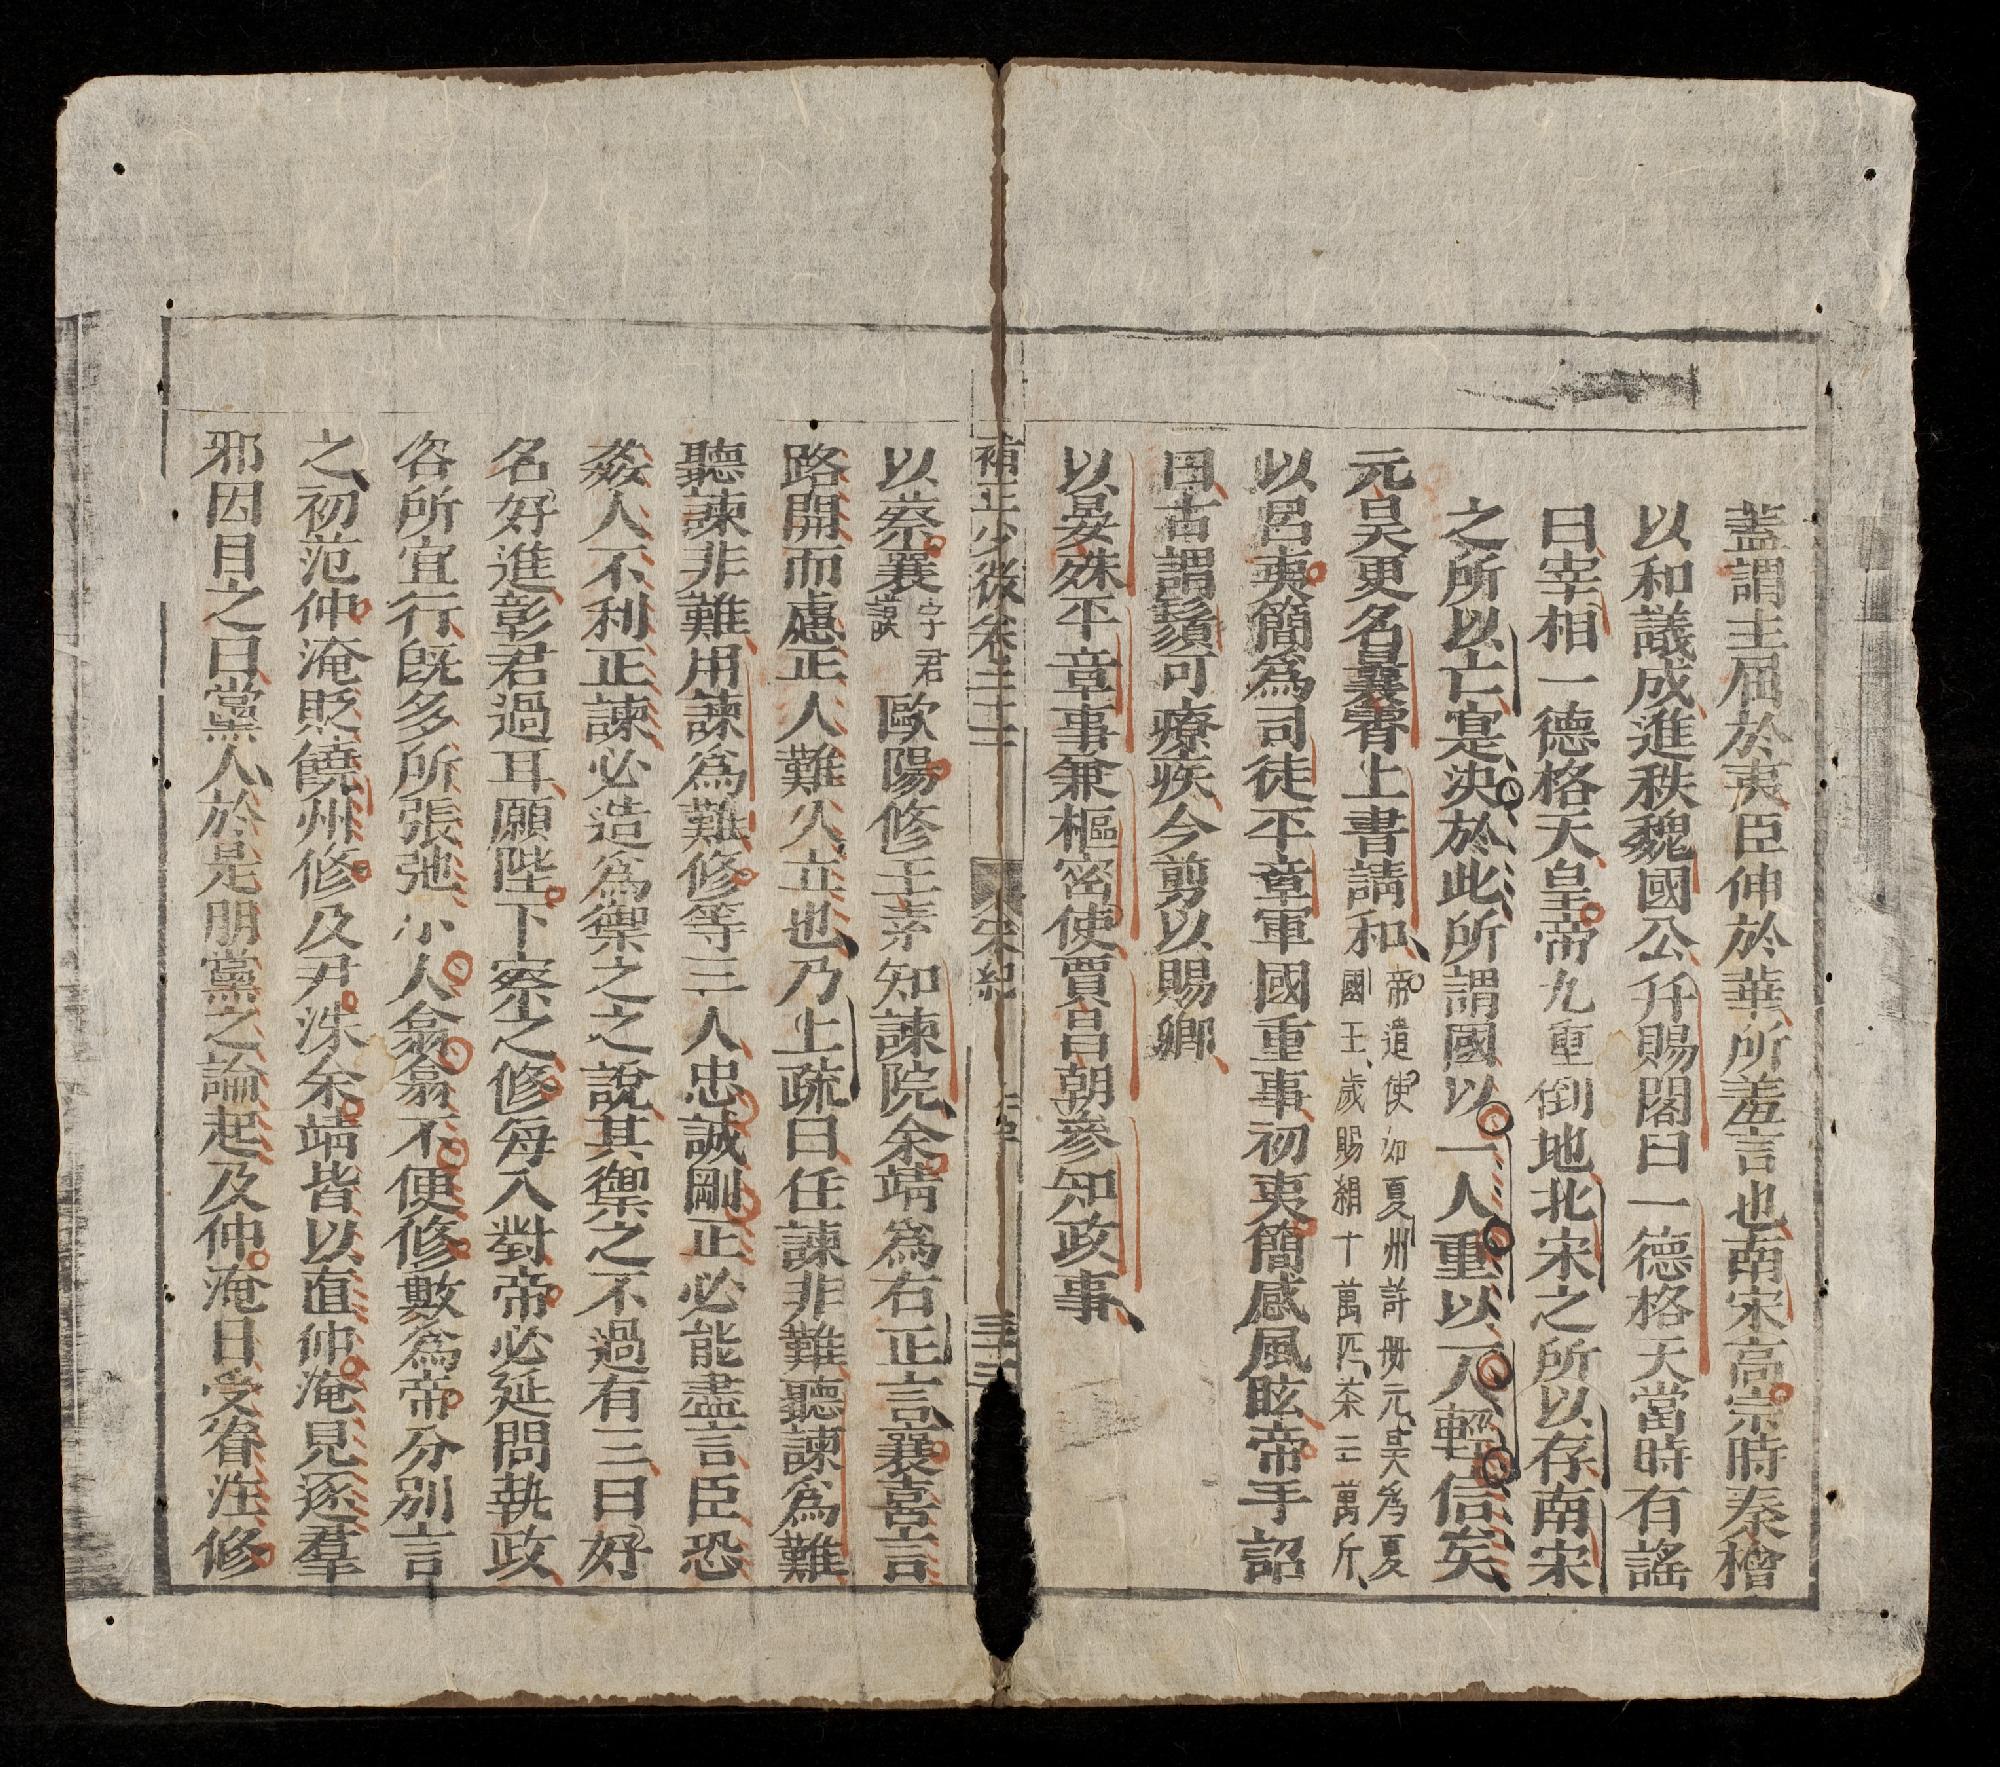 蓋謂主屈於夷臣伸於華所羞言也南宋高宗時秦檜
以和議成進秩魏國公升賜閣曰一德格天當時有謠
曰宰相一德格天皇帝九重倒地北宋之所以存南宋
之所以亡寔決於此所謂國以一人重以一人輕信矣
元昊更名曩霄上書請和帝遣使如夏州許册元昊為夏
國王歲賜絹十萬匹茶三萬斤
以呂夷簡為司徒平章軍國重事初夷簡感風眩帝手詔
曰古謂鬚可療疾今剪以賜卿
以晏殊平章事兼樞宻使賈昌朝參知政事
補正少微卷之二 宋紀
以蔡襄字君謨歐陽修王素知諫院余靖為右正言襄喜言
路開而慮正人難久立也乃上疏曰任諫非難聽諫為難
聽諫非難用諫為難修等三人忠誠剛正必能盡言臣恐
姦人不利正諫必造為禦之之說其禦之不過有三曰好
名好進彰君過耳願陛下察之修每入對帝必延問執政
咨所宜行既多所張弛小人翕翕不便修數為帝分別言
之初范仲淹貶饒州修及尹洙余靖皆以直仲淹見逐羣
邪因目之曰黨人於是朋黨之論起及仲淹日受眷注修